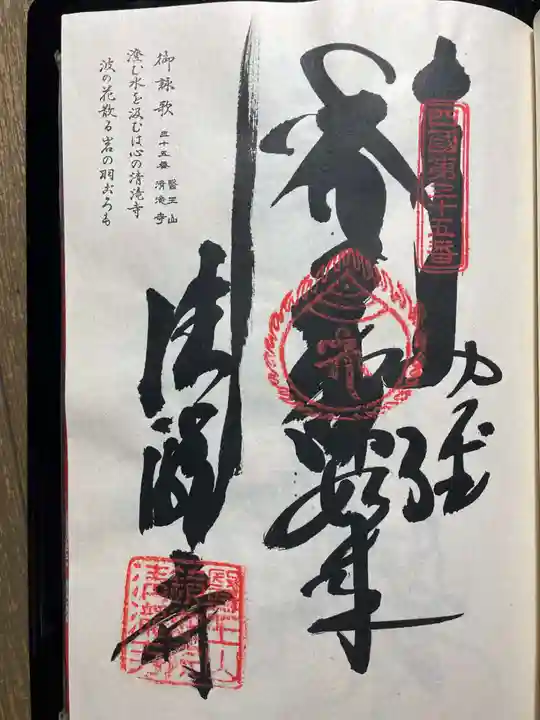 四國第三十五番
奉納経
薬師如来
清滝寺
醫王山清瀧寺
御詠歌 三十五番 醫王山 清滝寺
澄む水を汲むは心の清滝寺
波の花散る岩の羽ごろも